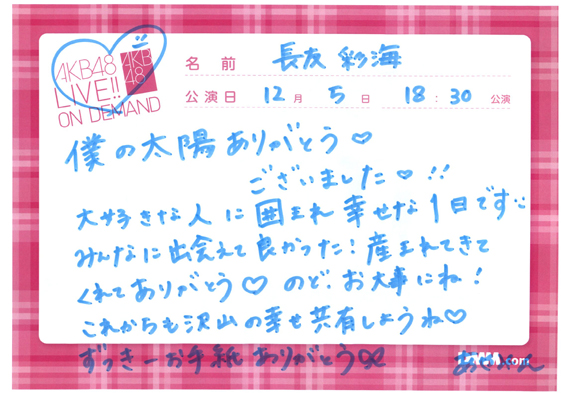 AKB48
LIVE!!
ON DEMAND
AKB
48
名前 長友 彩海
公演日 12月 5日 18:30 公演
僕の太陽ありがとう♡
ございました♡!!
大好きな人に囲まれ幸せな1日です
みんなに出会えて良かった!産まれてきて
くれてありがとう♡ のど、お大事にね!
これからも沢山の幸せ共有しようね♡
ずっきーお手紙ありがとう
.com